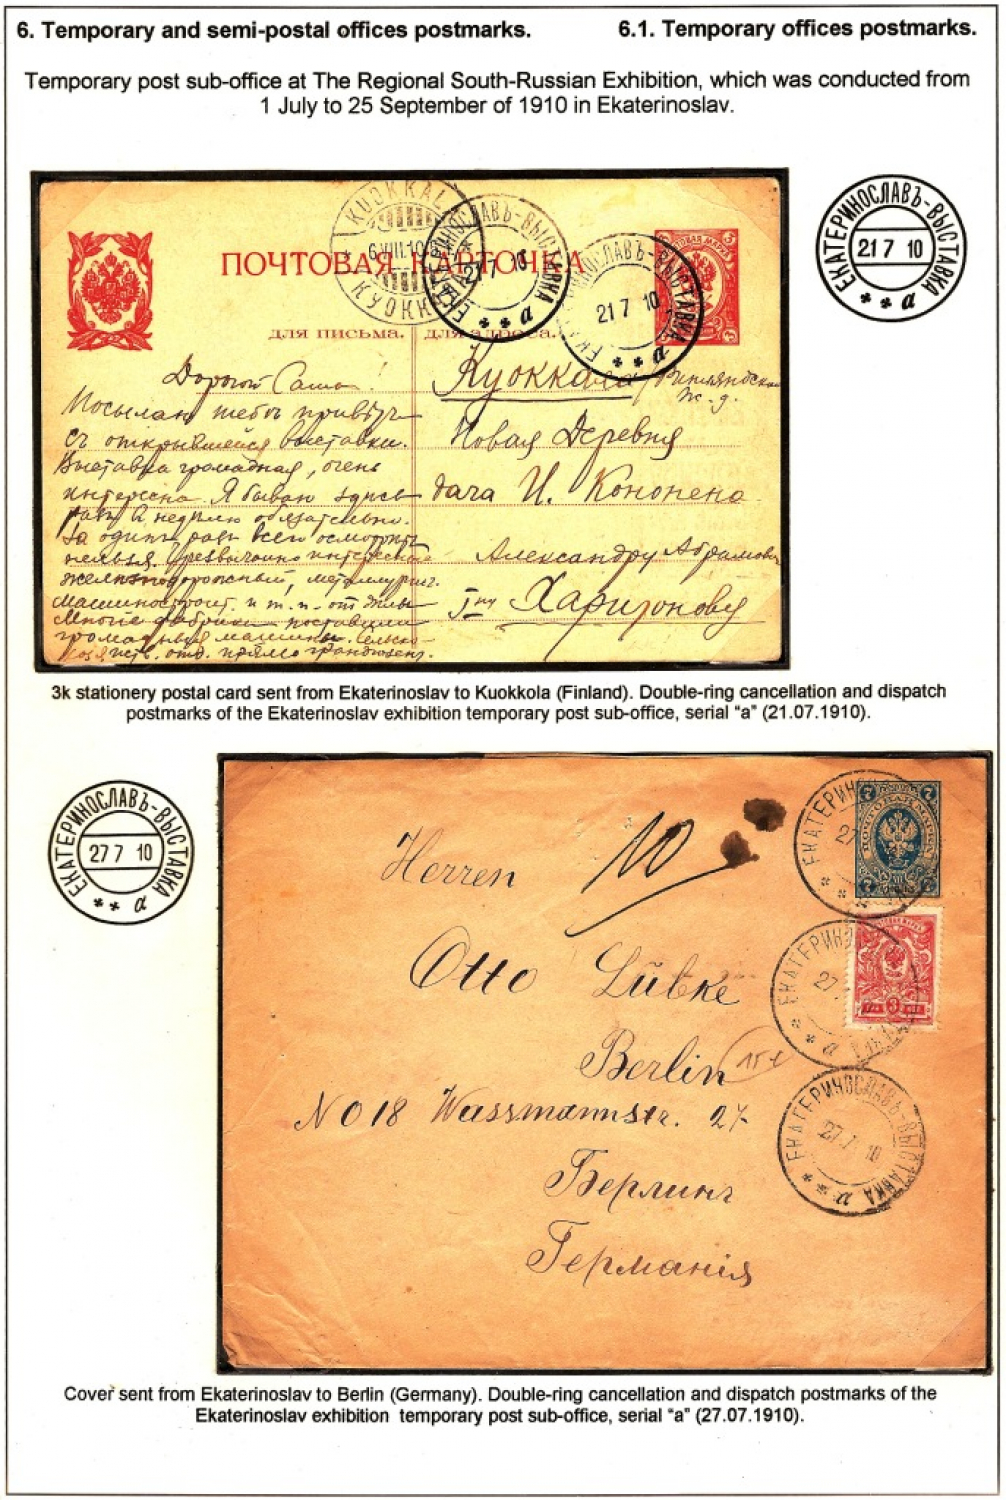 6. Temporary and semi-postal offices postmarks. 6.1. Temporary offices postmarks.
Temporary post sub-office at The Regional South-Russian Exhibition, which was conducted from
1 July to 25 September of 1910 in Ekaterinoslav.
ЕКАТЕРИНОСЛАВЪ-ВЫСТАВКА
21 7 10
а
KUOKKALA
6 VIII 10
КУОККАЛА
ЕКАТЕРИНОСЛАВЪ-ВЫСТАВКА
21 7 10
а
ЕКАТЕРИНОСЛАВЪ-ВЫСТАВКА
21 7 10
а
ПОЧТОВАЯ КАРТОЧКА
для письма. для адреса.
Дорогой Саша!
Посылаю тебѣ привѣтъ
съ открывшейся выставки.
Выставка громадная, очень
интересна. Я бываю здѣсь
разъ в недѣлю обязательно.
За одинъ разъ всего осмотрѣть
нельзя. Чрезвычайно интересные
желѣзнодорожный, металлург.
машиностроит. и т. п. отдѣлы
Многіе фабрики поставили
громадныя машины. Сельско-
хозяйств. отд. прямо грандіозенъ.
Куоккала Финляндская
ж. д.
Новая Деревня
дача И. Кононена
Александру Абрамович
Гну Харитонову
3k stationery postal card sent from Ekaterinoslav to Kuokkola (Finland). Double-ring cancellation and dispatch
postmarks of the Ekaterinoslav exhibition temporary post sub-office, serial "a" (21.07.1910).
ЕКАТЕРИНОСЛАВЪ-ВЫСТАВКА
27 7 10
а
7 7
ПОЧТОВАЯ МАРКА
7 7
ЕКАТЕРИНОСЛ
27
3
ЕКАТЕРИНОС
27
а
ЕКАТЕРИНОСЛАВЪ-ВЫСТАВКА
27 7 10
а
10
Herren
Otto Lübke
Berlin
NO 18 Wassmannstr. 27
Берлинъ
Германія
Cover sent from Ekaterinoslav to Berlin (Germany). Double-ring cancellation and dispatch postmarks of the
Ekaterinoslav exhibition temporary post sub-office, serial "a" (27.07.1910).